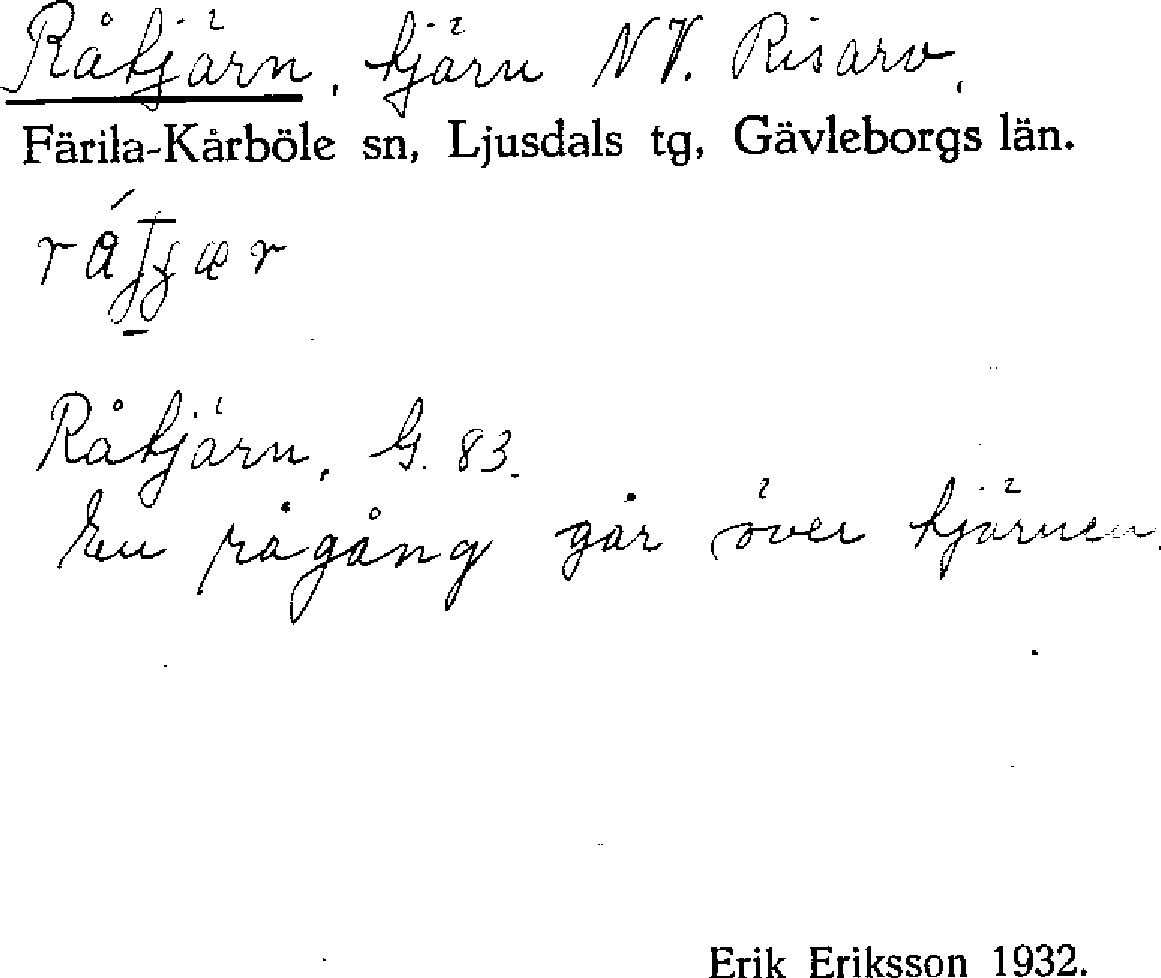 Råtjärn, tjärn NV. Risarv,
Färila-Kårböle sn, Ljusdals tg, Gävleborgs län.
Råtjärn, G. 83.
En rågång går över tjärnen.
Erik Eriksson 1932.